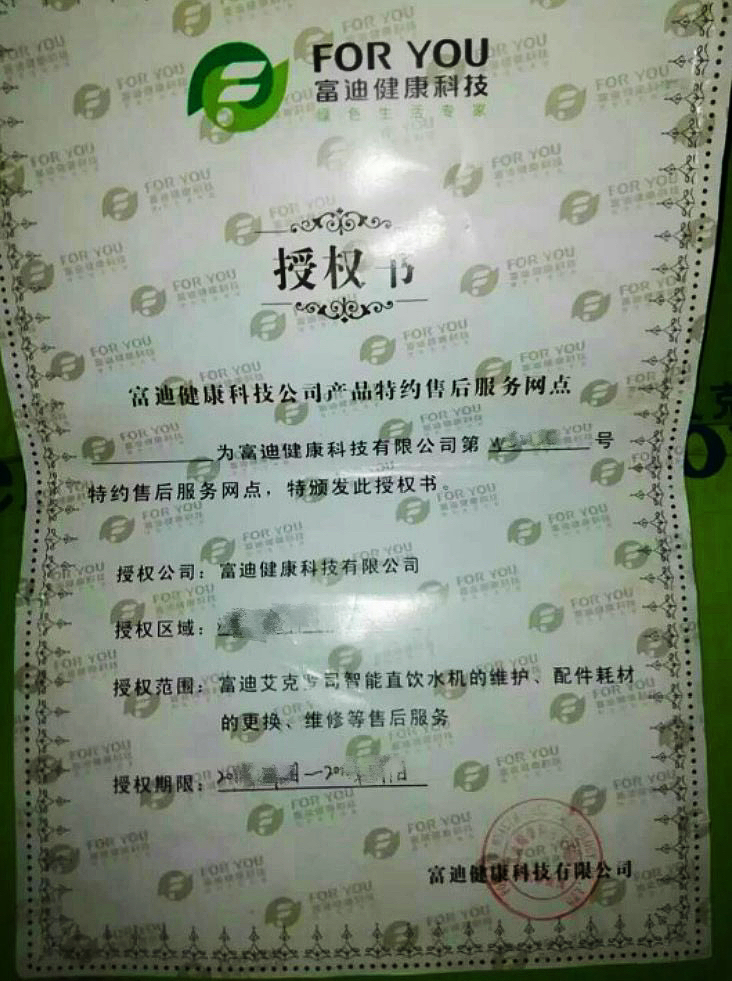 FOR YOU
富迪健康科技
绿色生活专家
授权书
富迪健康科技公司产品特约售后服务网点
为富迪健康科技有限公司第 号
特约售后服务网点，特颁发此授权书。
授权公司：富迪健康科技有限公司
授权区域：
授权范围：富迪艾克罗司智能直饮水机的维护、配件耗材
的更换、维修等售后服务
授权期限：20 — 20
富迪健康科技有限公司